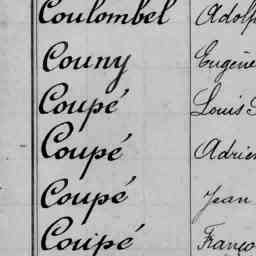 Coulombel Adolp
Couny Eugène
Coupé Louis
Coupé Adrie
Coupé Jean
Coupé Franço